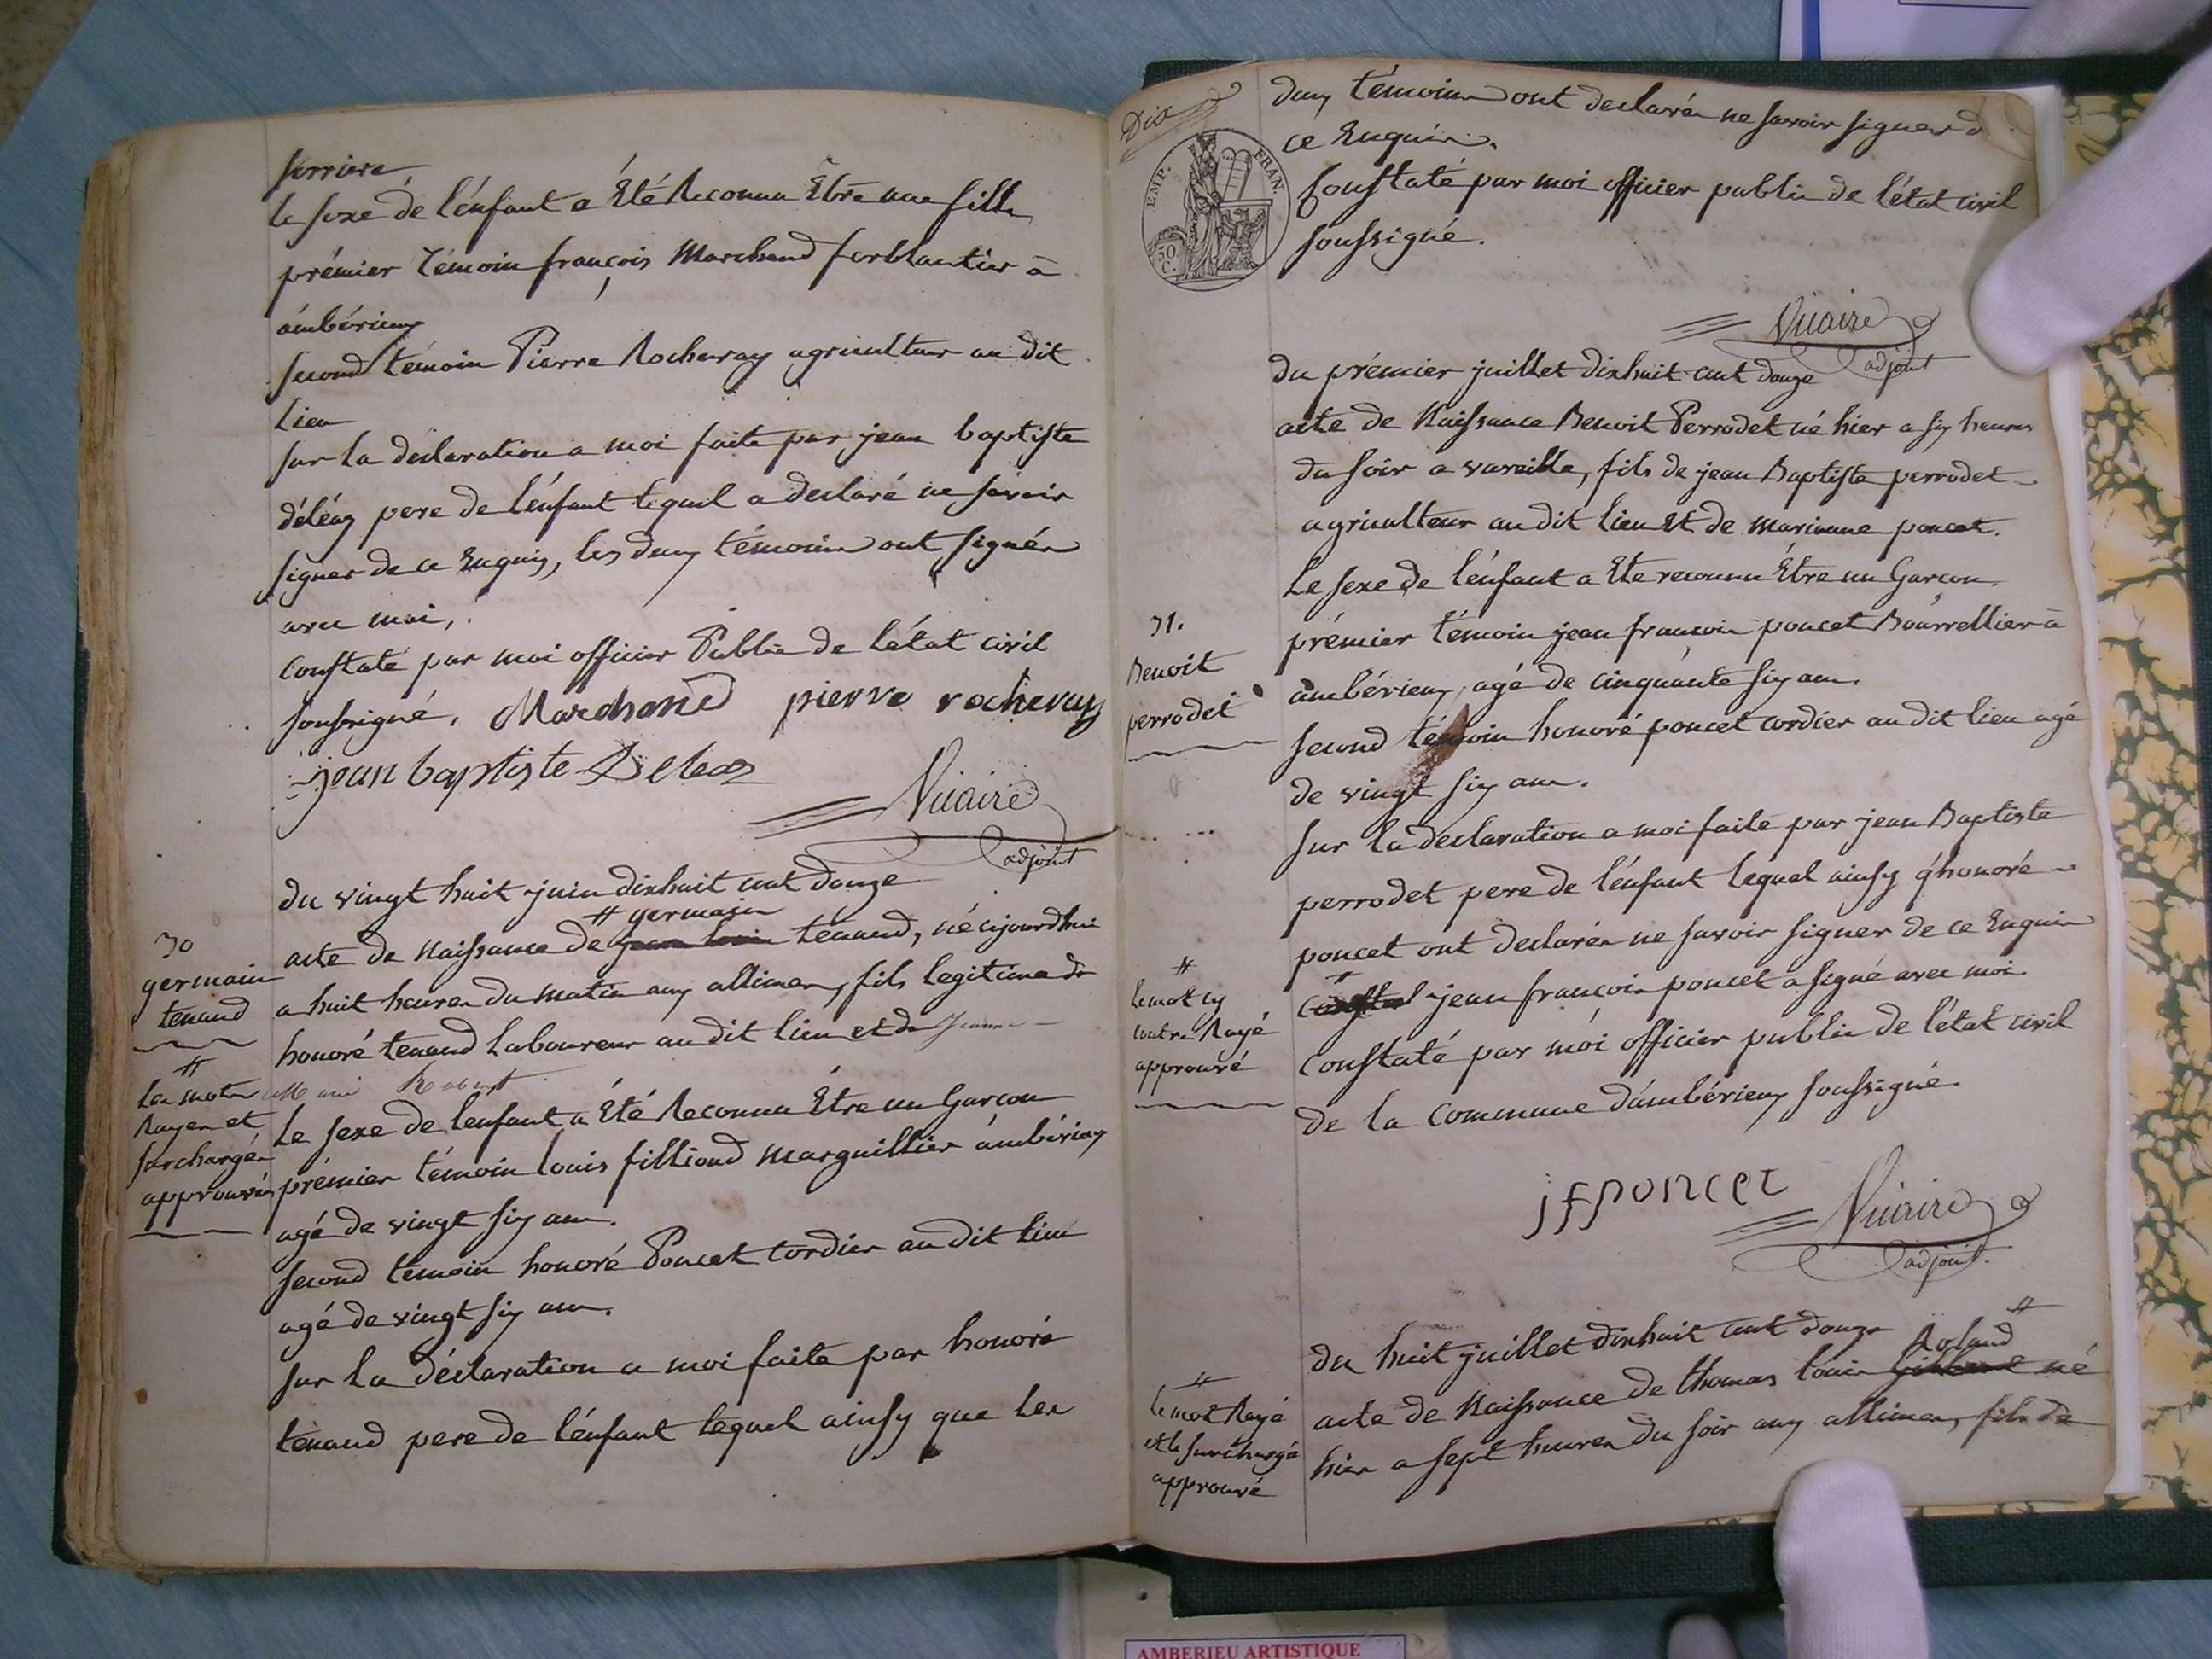 serriere
le sexe de l'énfant a Été Reconnu Etre une fille
prémier Témoin françois Marchand ferblantier à
ámbérieux
second témoin Pierre Rocheray agriculteur au dit
Lieu
sur la déclaration a moi faite par jean baptiste
déléaz pere de l'énfant lequel a declaré ne savoir
signer de ce Enquis, les deux témoins ont signés
avec moi,
constaté par moi officier Public de l'état civil
soussigné. Marchand pierre rocheray
jean baptiste Deleaz
Vicaire
adjoint
du vingt huit juin dixhuit cent douze
# germain
acte de Naissance de jean louis tenand, né cejourdhui
a huit heures du matin aux allimes, fils legitime de
honoré tenand Laboureur au dit lieu et de Jeanne
Marie
Le sexe de lenfant a Été Reconnu Étre un Garcon
prémier témoin louis filliond marguillier ámbérieux
agé de vingt six ans.
second témoin honoré Poncet Cordier au dit lieu
agé de vingt six ans.
sur la déclaration a moi faite par honoré
tenand pere de l'énfant lequel ainsy que les
30
germain
tenand
#
Les mots
Rayes et
surchargés
approuvés
Dix
EMP. FRAN.
50 C.
deux témoins ont declarés ne savoir signer d
ce Enquis.
Constaté par moi officier public de l'état civil
soussigné.
Vicaire
adjoint
du prémier juillet dixhuit cent douze
acte de Naissance Benoit Perrodet né hier a six heures
du soir a vareille, fils de jean Baptiste perrodet
agriculteur au dit lieu Et de marianne poncet.
Le sexe de l'énfant a Ete reconnu Étre un Garcon.
prémier témoin jean francois poncet Bourrellier à
ambérieux, agé de cinquante six ans.
second témoin honoré poncet cordier au dit lieu agé
de vingt six ans.
sur la declaration a moi faite par jean Baptiste
perrodet pere de l'énfant lequel ainsy q'honoré
poncet ont declarés ne savoir signer de ce Enquis
# jean francois poncet a signé avec moi.
Constaté par moi officier public de l'état civil
de la Commune d'ámbérieux soussigné.
jfponcet
Vicaire
adjoint.
31.
Benoit
perrodet
#
le mot cy
contre Rayé
approuvé
du huit juillet dixhuit cent douze
Roland #
acte de Naissance de thomas louis né
hier a sept heures du soir aux allimes, fils de
#
le mot Rayé
et le surchargé
approuvé
AMBERIEU ARTISTIQUE